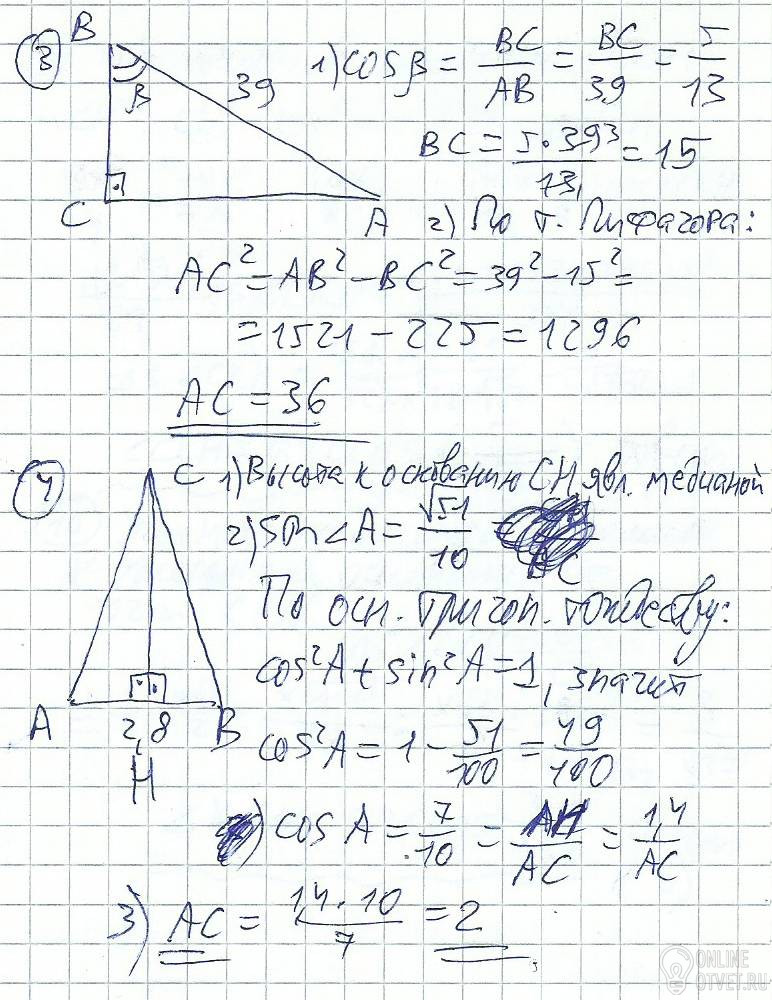 3
B
β
39
C
A
1) cosβ = BC/AB = BC/39 = 5/13
BC = 5·39³/13₁ = 15
2) По т. Пифагора:
AC² = AB² - BC² = 39² - 15² =
= 1521 - 225 = 1296
AC = 36
4
C
A
2,8
B
H
1) Высота к основанию CH явл. медианой
2) sin∠A = √51/10
По осн. тригон. тождеству:
cos²A + sin²A = 1, значит
cos²A = 1 - 51/100 = 49/100
) cos A = 7/10 = AH/AC = 1,4/AC
3) AC = 14·10/7 = 2
ONLINE
OTVET.RU